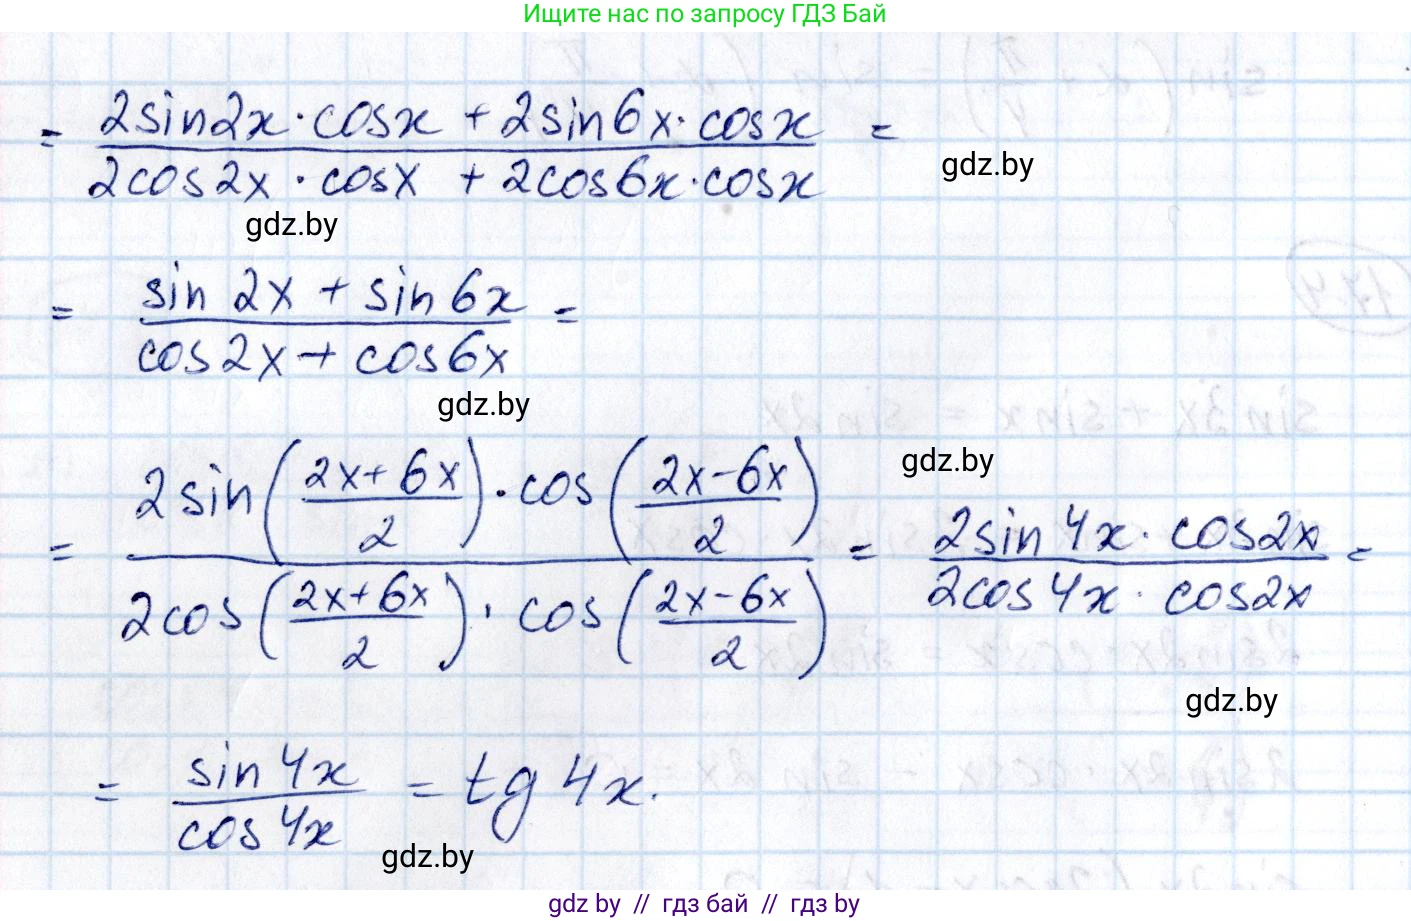 Ищите нас по запросу ГДЗ Бай
= (2sin2x · cosx + 2sin6x · cosx) / (2cos2x · cosx + 2cos6x · cosx) =
gdz.by
gdz.by
= (sin 2x + sin 6x) / (cos 2x + cos 6x) =
gdz.by
gdz.by
= (2 sin((2x + 6x) / 2) · cos((2x − 6x) / 2)) / (2 cos((2x + 6x) / 2) · cos((2x − 6x) / 2)) = (2sin 4x · cos2x) / (2cos 4x · cos2x) =
gdz.by
= (sin 4x) / (cos 4x) = tg 4x.
gdz.by
gdz by // гдз бай // гдз by